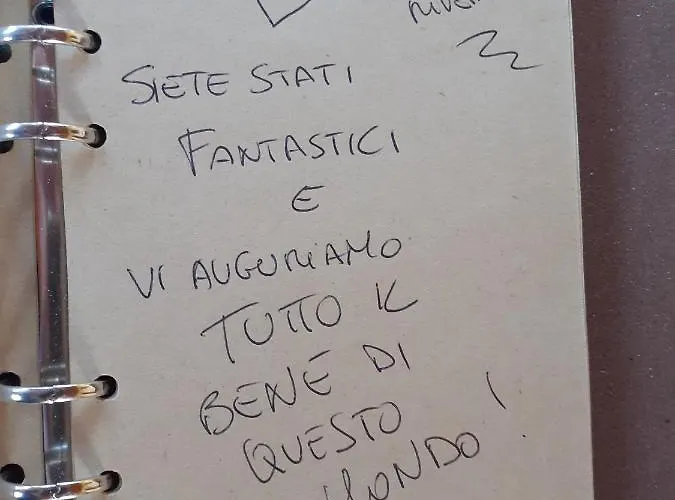 SIETE STATI
FANTASTICI
E
VI AUGURIAMO
TUTTO IL
BENE DI
QUESTO
MONDO!